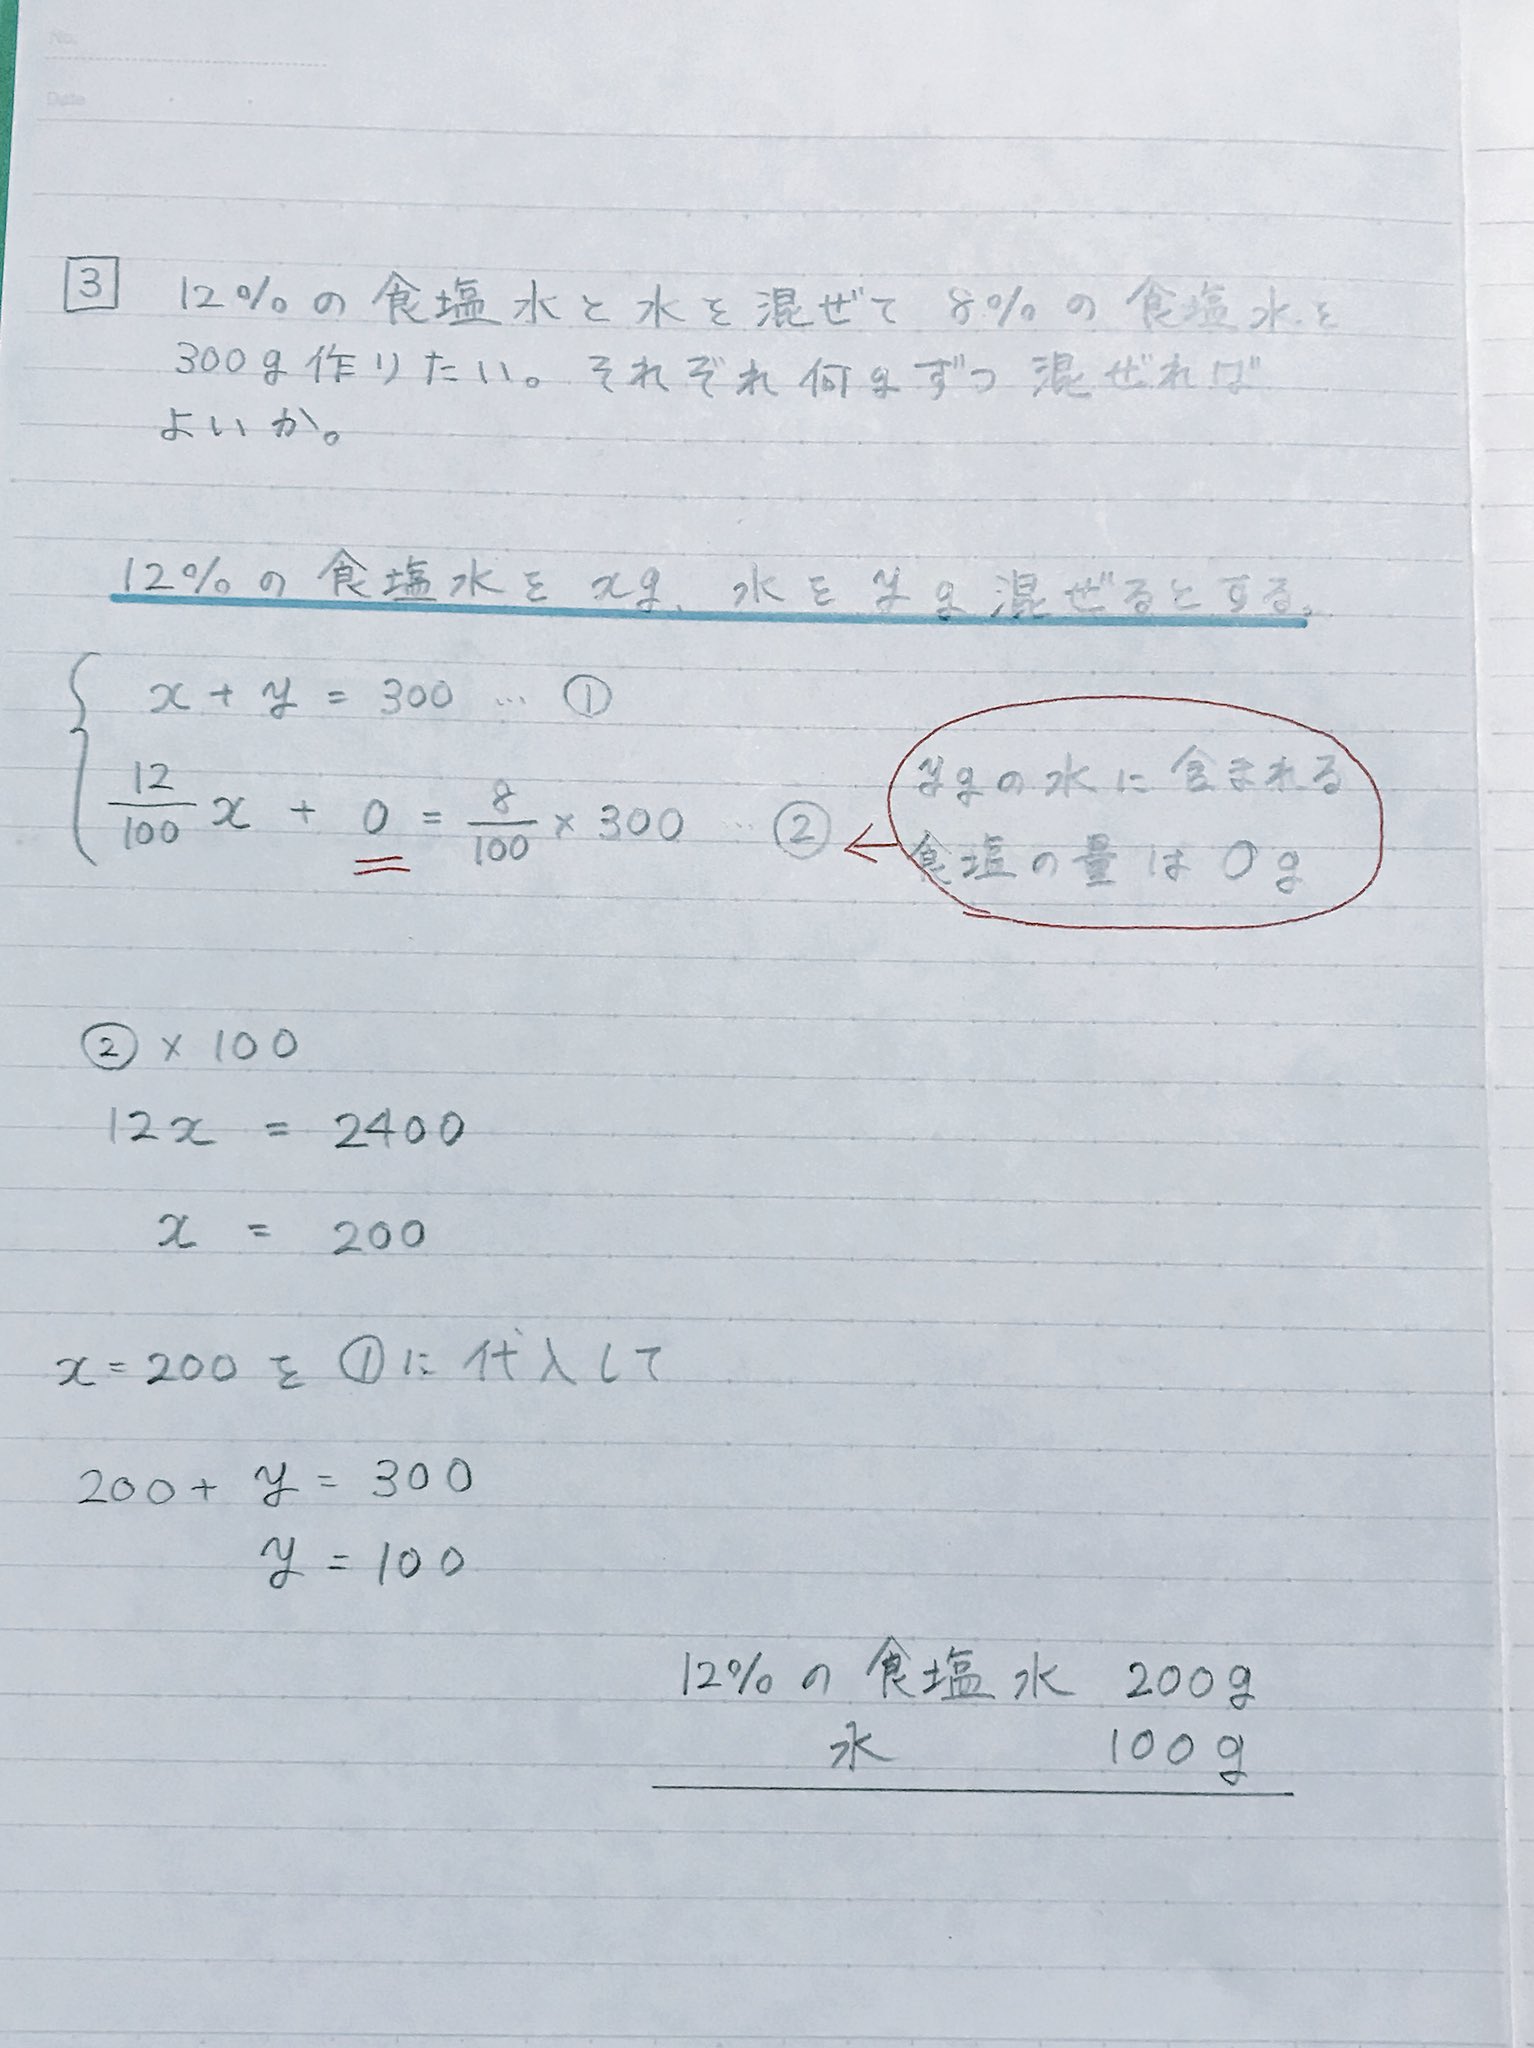 No.
Date
3 12%の食塩水と水を混ぜて8%の食塩水を
300g作りたい。それぞれ何gずつ混ぜれば
よいか。
12%の食塩水をxg、水をyg混ぜるとする。
x + y = 300 … ①
12/100 x + 0 = 8/100 × 300 … ②
ygの水に含まれる
食塩の量は0g
② × 100
12x = 2400
x = 200
x=200を①に代入して
200 + y = 300
y = 100
12%の食塩水 200g
水 100g